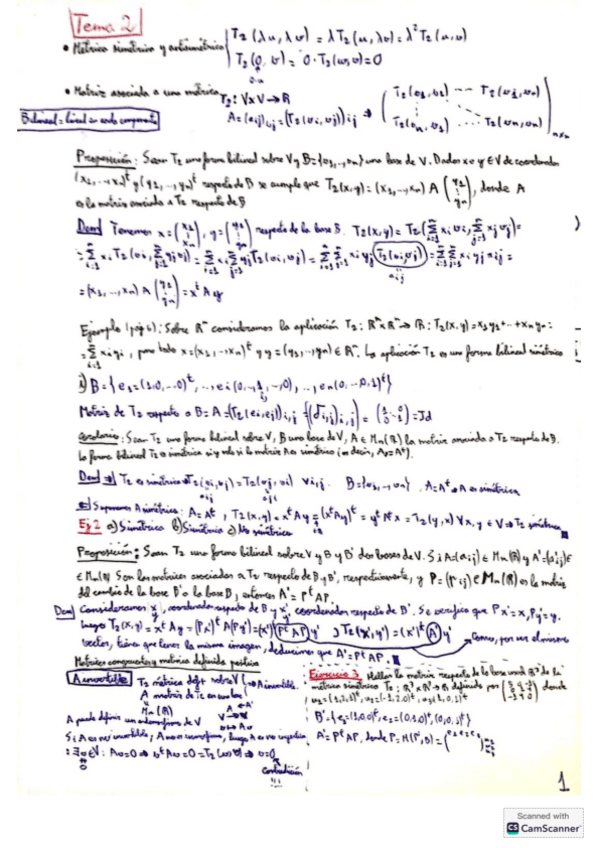 Tema 2
• Métrica simétrica y antisimétrica
T₂(λu, λv) = λT₂(u, λv) = λ²T₂(u, v)
T₂(0, v) = 0·T₂(u, v) = 0
• Matriz asociada a una métrica
T₂: V×V → ℝ
Bilineal = lineal en cada componente
A = (aij)i,j = (T₂(vi, vj))ij →
Proposición: Sean T₂ una forma bilineal sobre V y B = {v₁,...,vn} una base de V. Dados x e y ∈ V de coordenadas
(x₁,...,xn)ᵗ y (y₁,...,yn)ᵗ respecto de B se cumple que T₂(x,y) = (x₁,...,xn) A (y₁ ⋮ yn), donde A
es la matriz asociada a T₂ respecto de B
Dem Tenemos x = (x₁ ⋮ xn), y = (y₁ ⋮ yn) respecto de la base B.
= (x₁,...,xn) A (y₁ ⋮ yn) = xᵗAy
Ejemplo (pág 6): Sobre ℝⁿ consideramos la aplicación T₂: ℝⁿ×ℝⁿ → ℝ: T₂(x,y) = x₁y₁+...+xnyn =
= Σ xiyi, para todo x = (x₁,...,xn)ᵗ y y = (y₁,...,yn)ᵗ ∈ ℝⁿ. La aplicación T₂ es una forma bilineal simétrica
Matriz de T₂ respecto a B = A = (T₂(ei,ej))i,j = (δi,j)i,j = Id
Corolario: Sean T₂ una forma bilineal sobre V, B una base de V, A ∈ Mn(ℝ) la matriz asociada a T₂ respecto de B.
La forma bilineal T₂ es simétrica si y sólo si la matriz A es simétrica (es decir, A = Aᵗ).
Dem ⇒ T₂ es simétrica ⇒ T₂(vi,vj) = T₂(vj,vi) ∀i,j. B = {v₁,...,vn} A = Aᵗ ⇒ A es simétrica
⇐ Suponemos A simétrica: A = Aᵗ, T₂(x,y) = xᵗAy = (xᵗAy)ᵗ = yᵗAᵗx = T₂(y,x) ∀x,y ∈ V ⇒ T₂ simétrica
Ej 2 a) Simétrica b) Simétrica c) No simétrica
Proposición: Sean T₂ una forma bilineal sobre V y B y B' dos bases de V. Si A = (aij) ∈ Mn(ℝ) y A' = (a'ij) ∈
∈ Mn(ℝ) son las matrices asociadas a T₂ respecto de B y B', respectivamente, y P = (pij) ∈ Mn(ℝ) es la matriz
del cambio de la base B' a la base B, entonces A' = PᵗAP.
Dem Consideramos x, y coordenadas respecto de B y x', y' coordenadas respecto de B'. Se verifica que Px' = x, Py' = y.
luego T₂(x,y) = xᵗAy = (Px')ᵗA(Py') = (x')ᵗ(PᵗAP)y', T₂(x',y') = (x')ᵗ(A')y' Como, por ser el mismo
vector, tienen que tener la misma imagen, deducimos que A' = PᵗAP.
Matrices congruentes y métrica definida positiva
A invertible
T₂ métrica def+ sobre V
A matriz de T₂ en una base
A invertible.
Mn(ℝ)
A puede definir un endomorfismo de V
Si A es no invertible,
: ∃ v ∈ V: Av = 0 ⇒ vᵗAv = 0 = T₂(v,v) ⇒ v = 0
Contradicción
Ejercicio 3 Hallar la matriz respecto de la base usual ℝ³ de la
métrica simétrica T₂: ℝ³×ℝ³ → ℝ definida por donde
B' = {e₁ = (1,0,0)ᵗ, e₂ = (0,1,0)ᵗ, (0,0,1)ᵗ}
A' = PᵗAP, donde P = M(B',B) =
1
Scanned with
CS CamScanner